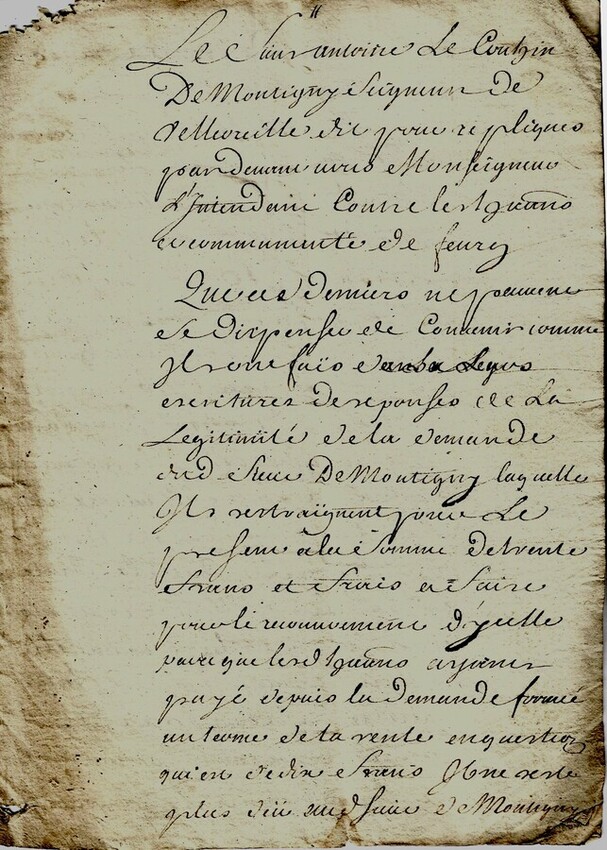 Le Sieur antoine Le Couhin
De Montigny Seigneur de
velleoreille dit pour repliques
par devant vous Monseigneur
L'Intendant Contre les habitans
et communauté de feurg
Que ces derniers ne peuvent
se dispenser de Convenir comme
Ils ont fais dans Leurs
escritures de reponses de La
Legitimité de la demande
dud Sieur De Montigny laquelle
Ils restraignent pour Le
present à la Somme de trente
francs et frais a faire
pour le recouvrement d'ycelle
parce que lesd habitans ayant
payé depuis la demande formée
un terme de la rente en question
qui est de dix francs Il ne reste
plus dû aud Sieur de Montigny